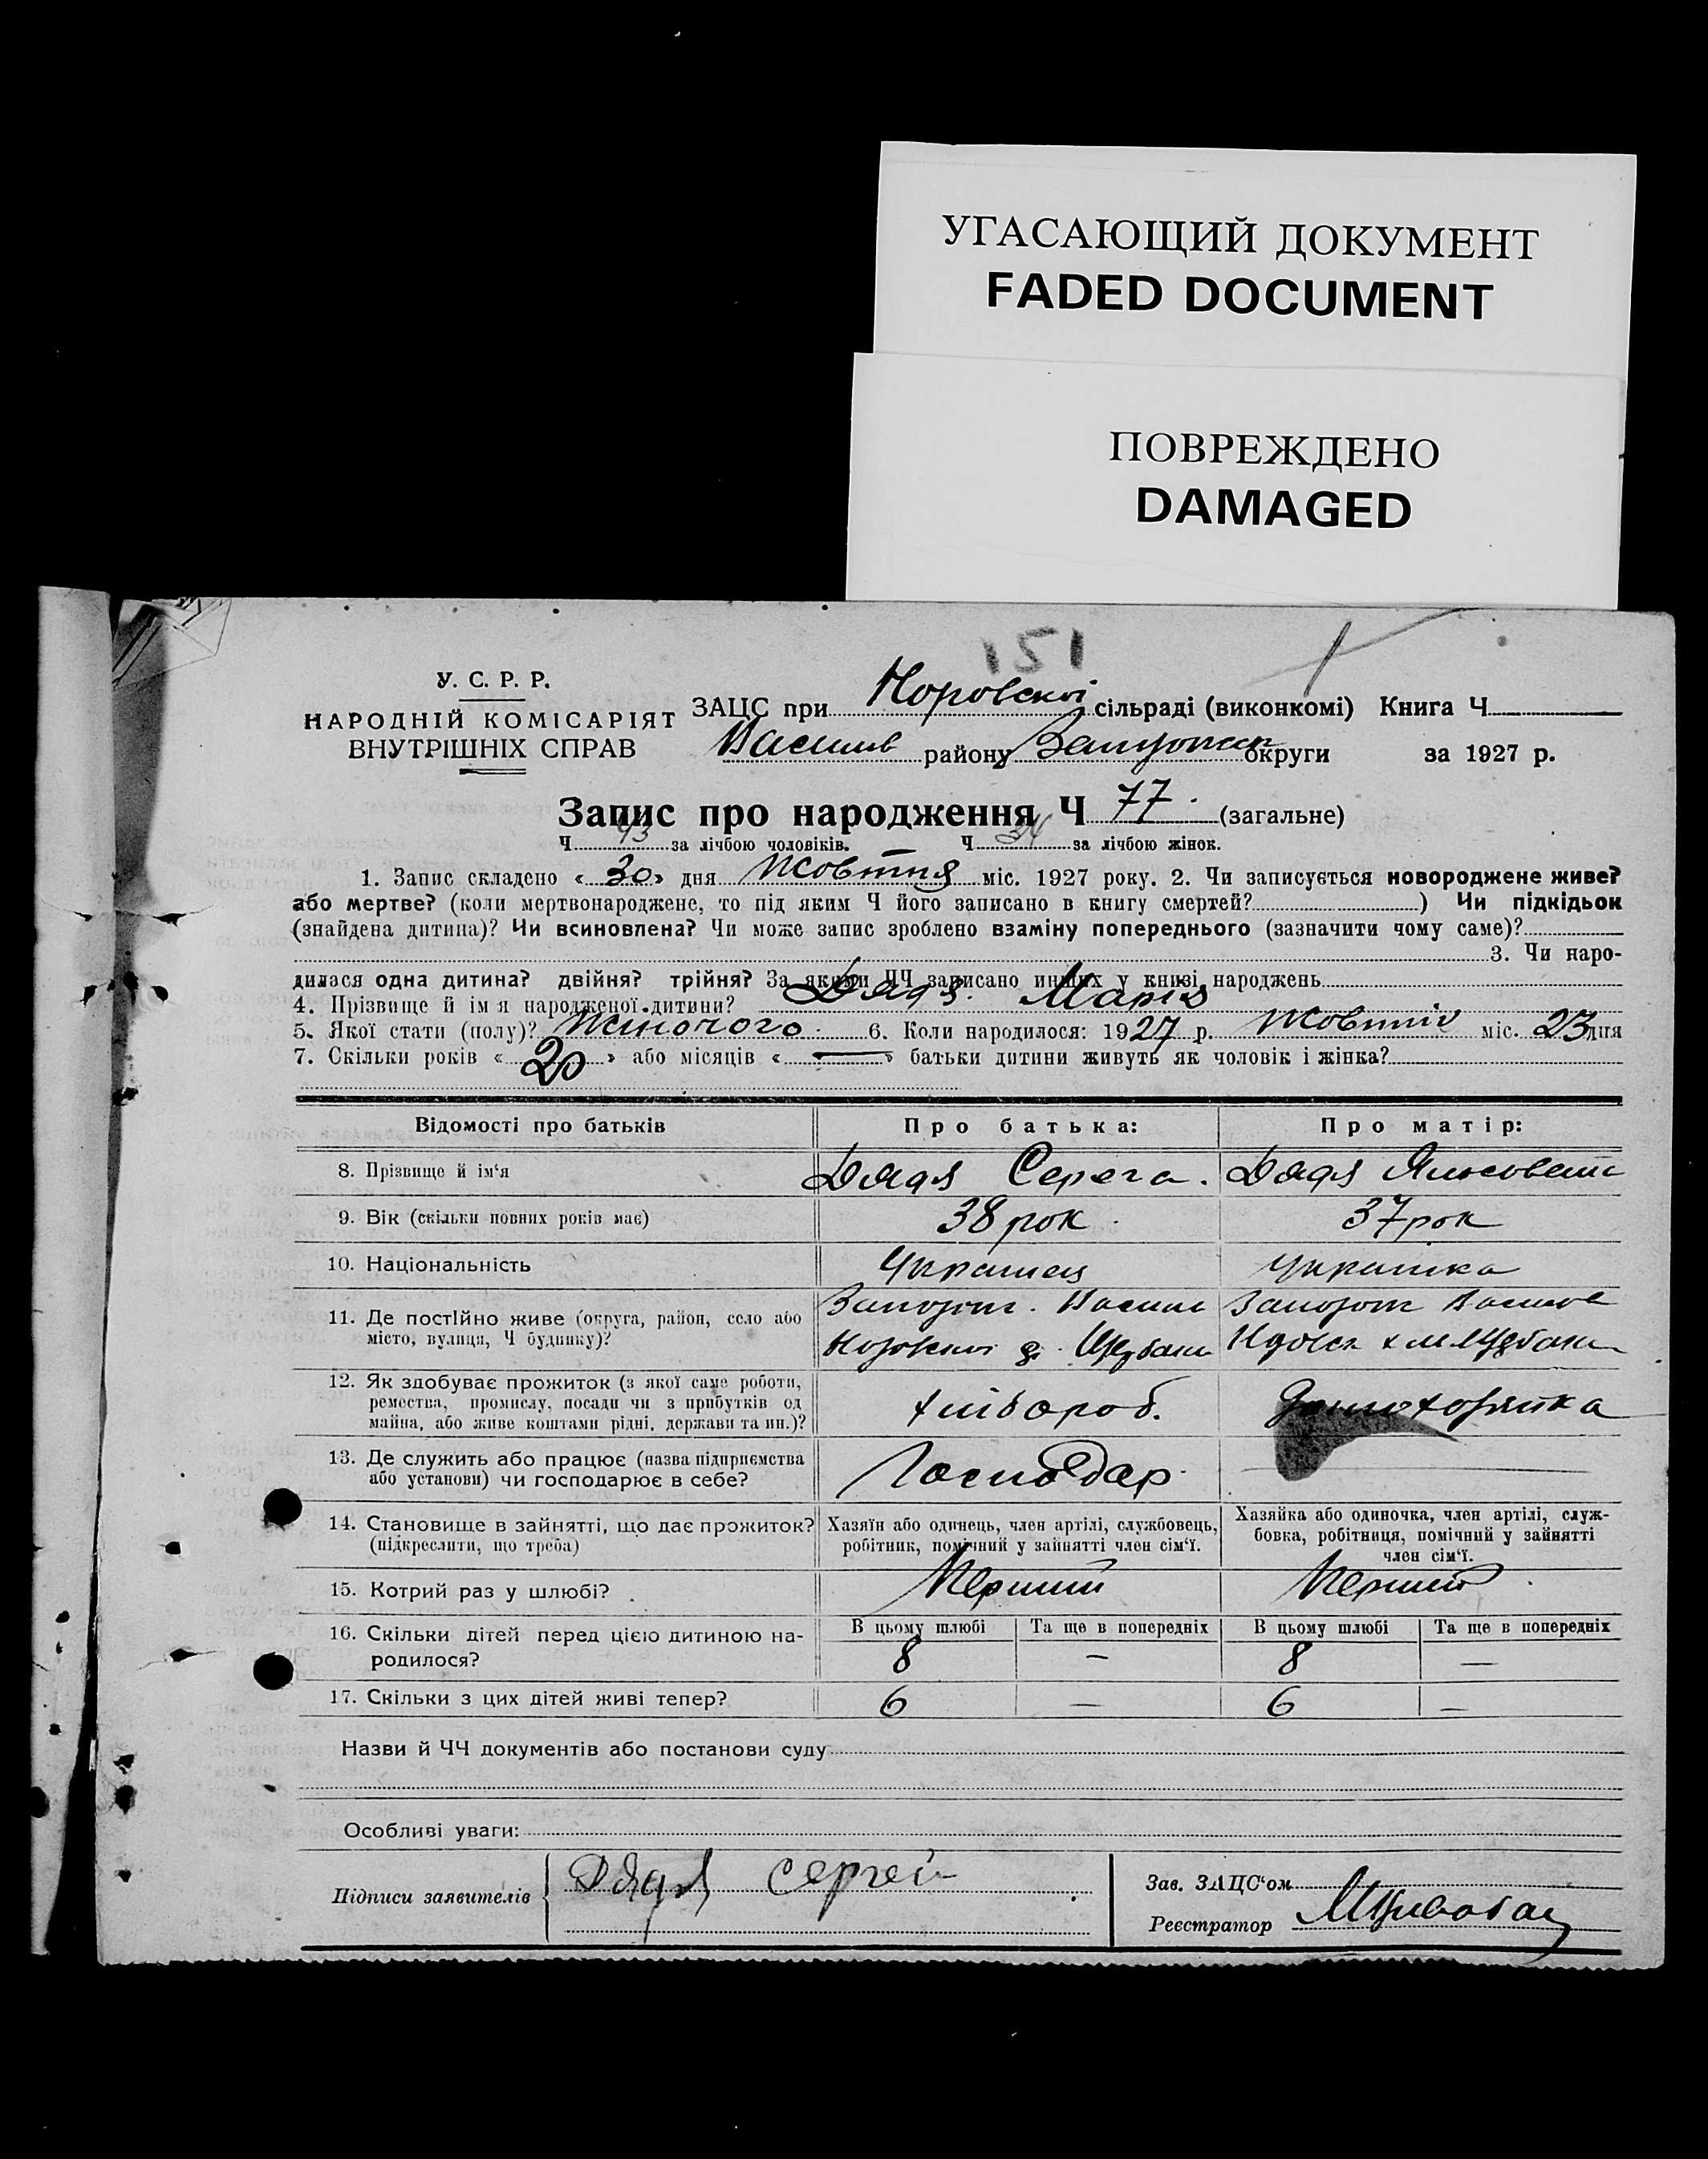 УГАСАЮЩИЙ ДОКУМЕНТ
FADED DOCUMENT
ПОВРЕЖДЕНО
DAMAGED
151
У. С. Р. Р.
НАРОДНІЙ КОМІСАРІЯТ
ВНУТРІШНІХ СПРАВ
ЗАЦС при сільраді (виконкомі) Книга Ч
Василів району округи за 1927 р.
Запис про народження Ч 77. (загальне)
Ч 43 за лічбою чоловіків. Ч 34 за лічбою жінок.
1. Запис складено « 30 » дня Жовтня міс. 1927 року. 2. Чи записується новороджене живе?
або мертве? (коли мертвонароджене, то під яким Ч його записано в книгу смертей? ) Чи підкідьок
(знайдена дитина)? Чи всиновлена? Чи може запис зроблено взаміну попереднього (зазначити чому саме)?
3. Чи наро-
дилася одна дитина? двійня? трійня? За якими ЧЧ записано инших у книзі народжень
4. Прізвище й ім я народженої дитини? Дядя Марія
5. Якої стати (полу)? Жіночого 6. Коли народилося: 1927 р. Жовтня міс. 23 дня
7. Скільки років « 20 » або місяців « — » батьки дитини живуть як чоловік і жінка?
Відомості про батьків Про батька: Про матір:
8. Прізвище й ім'я Дядя Серега. Дядя
9. Вік (скільки повних років має) 38 рок 37 рок
10. Національність Українец Українка
11. Де постійно живе (округа, район, село або
місто, вулиця, Ч будинку)?
12. Як здобуває прожиток (з якої саме роботи,
ремества, промислу, посади чи з прибутків од
майна, або живе коштами рідні, держави та ин.)?
хлібороб. Домохозяйка
13. Де служить або працює (назва підприємства
або установи) чи господарює в себе?
Господар
14. Становище в зайнятті, що дає прожиток?
(підкреслити, що треба)
Хазяїн або одинець, член артілі, службовець,
робітник, помічний у зайнятті член сім'ї.
Хазяйка або одиночка, член артілі, служ-
бовка, робітниця, помічний у зайнятті
член сім'ї.
15. Котрий раз у шлюбі? Перший Перший
16. Скільки дітей перед цією дитиною на-
родилося?
В цьому шлюбі Та ще в попередніх В цьому шлюбі Та ще в попередніх
8 — 8 —
17. Скільки з цих дітей живі тепер? 6 — 6 —
Назви й ЧЧ документів або постанови суду
Особливі уваги:
Підписи заявителів Дядя Сергей
Зав. ЗАЦС'ом
Реєстратор